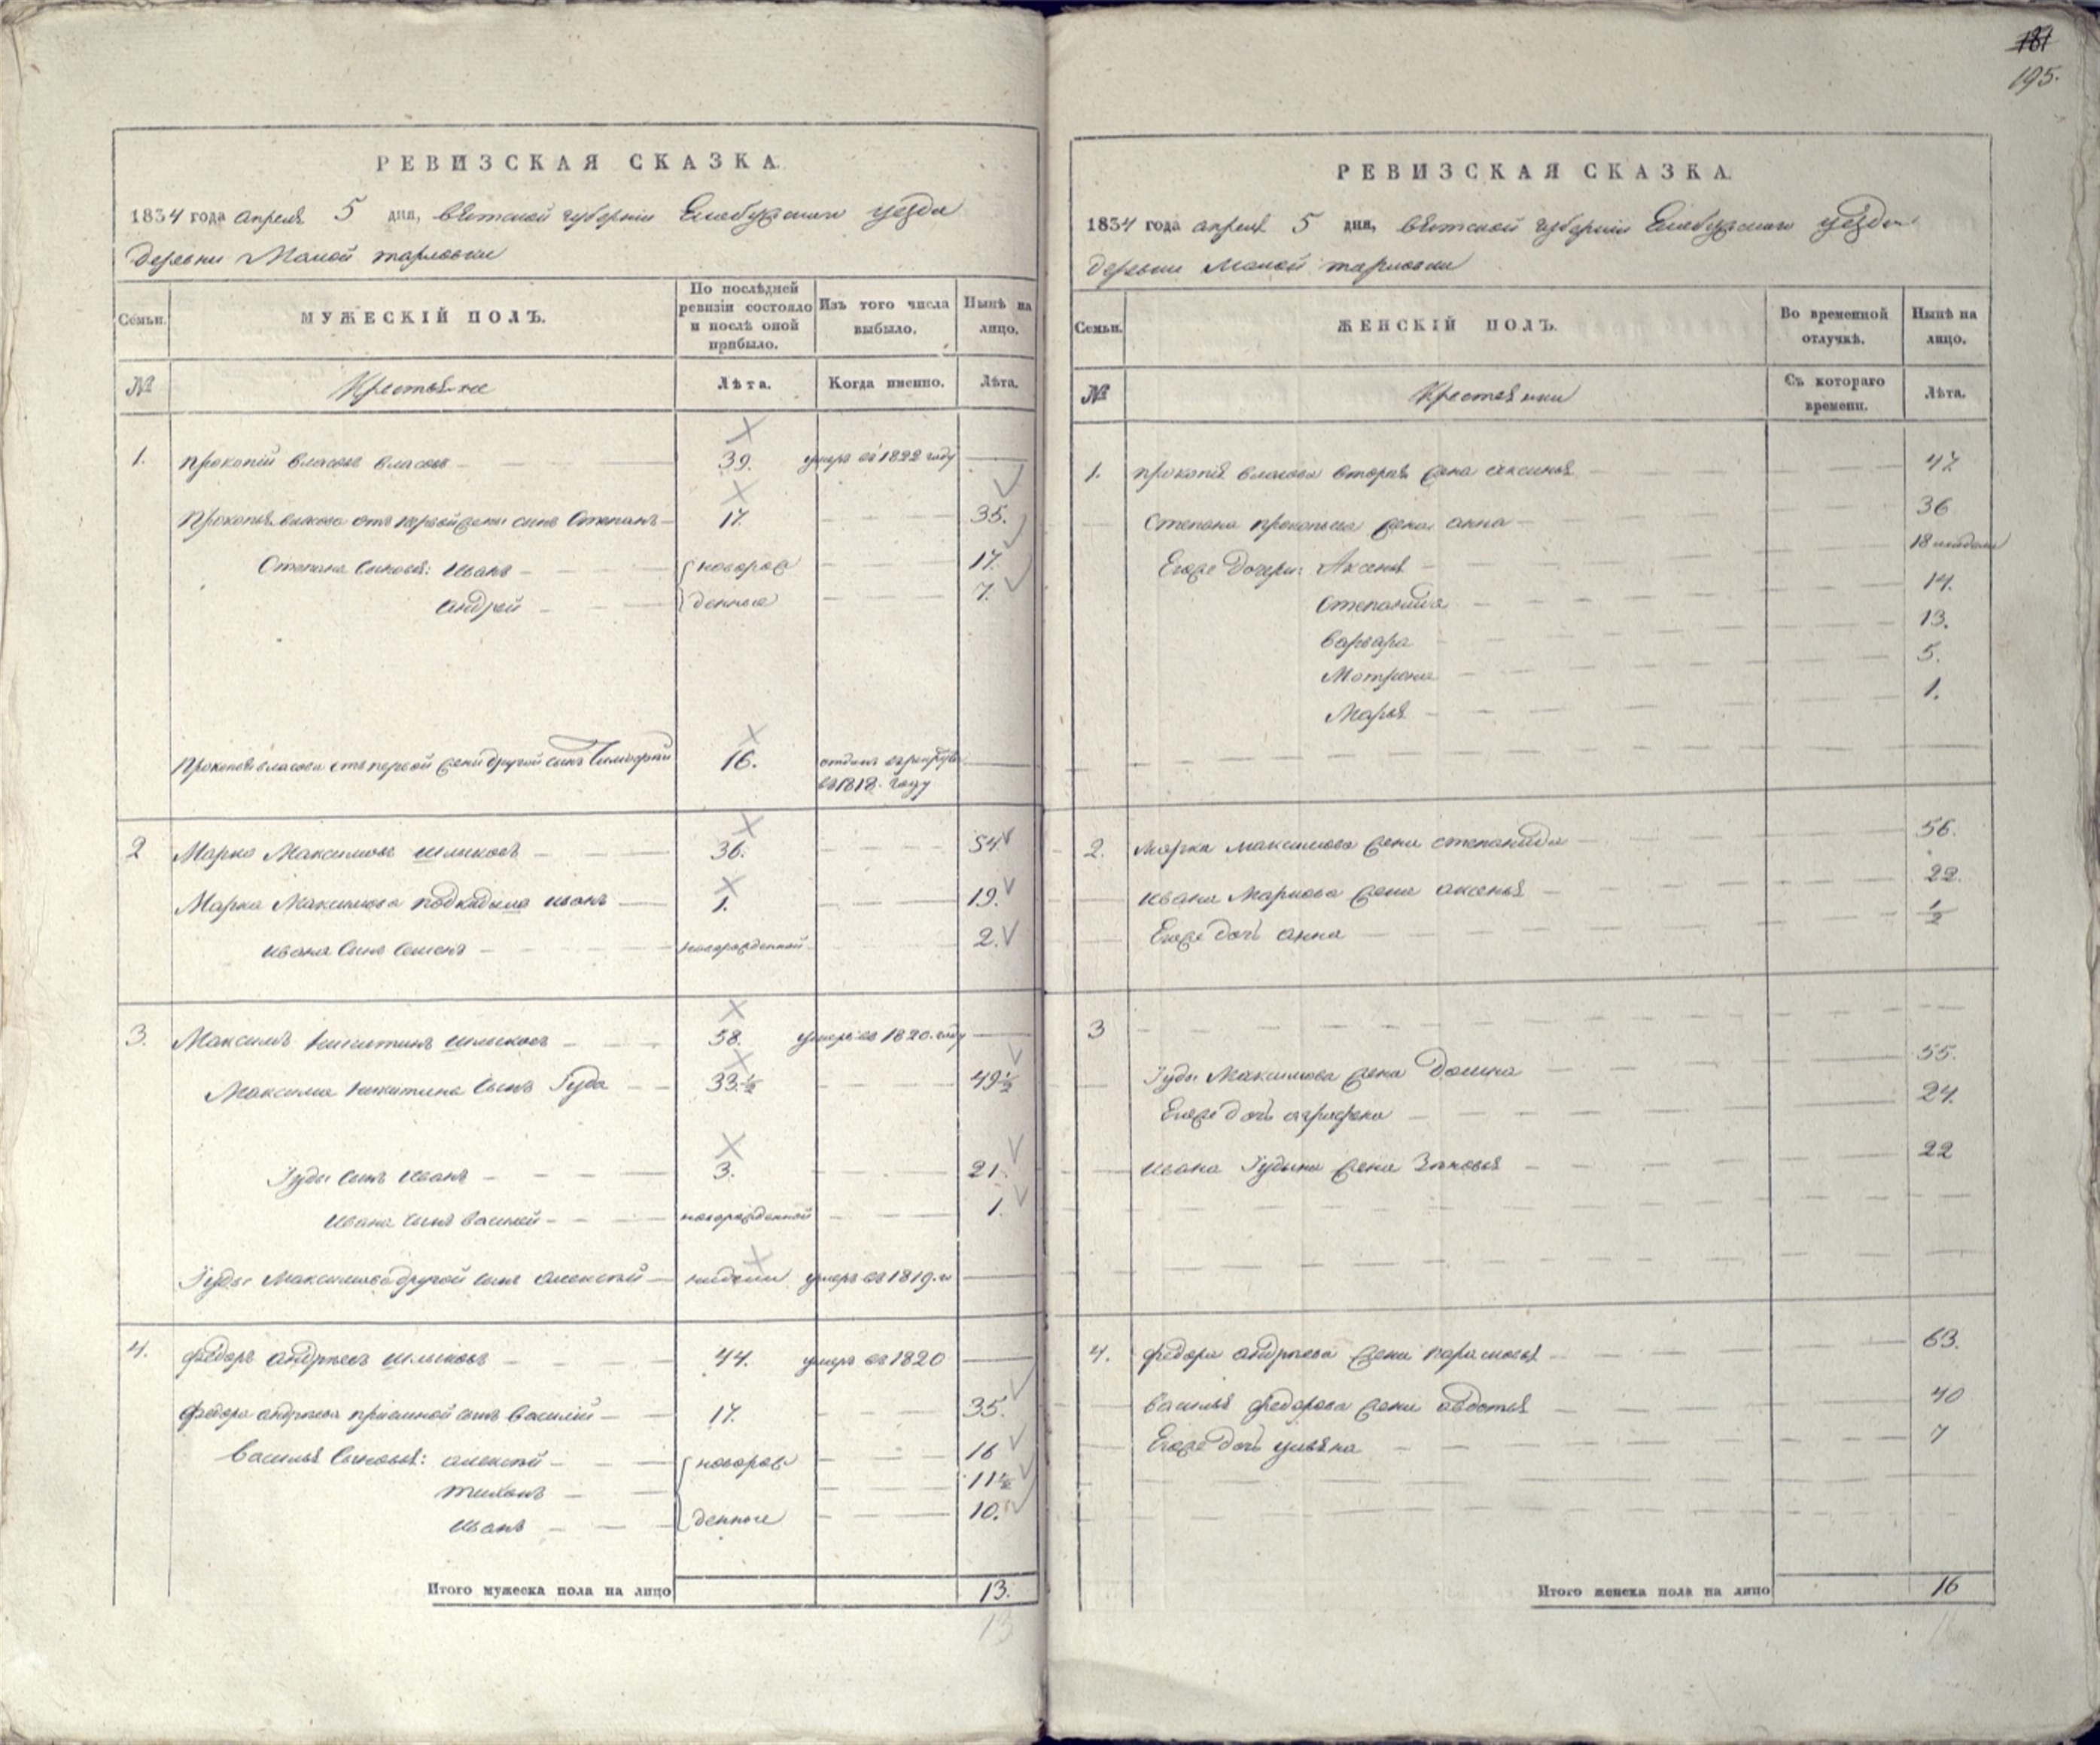 РЕВИЗСКАЯ СКАЗКА.
1834 года апреля 5 дня, вятской губернии Елабужскаго уезда
деревни Малой тарловки
Семьи. МУЖЕСКІЙ ПОЛЪ. По послѣдней ревизіи состояло и послѣ оной прибыло. Изъ того числа выбыло. Нынѣ на лицо.
№ Крестьяне Лѣта. Когда именно. Лѣта.
1. Прокопій власовъ власовъ 39. умеръ въ 1822 году
Прокопья власова отъ первой жены сынъ Степанъ 17. 35.
Степана сыновья: Иванъ новорож 17.
андрей денные 7.
Прокопья власова отъ первой жены другой сынъ Тимофей 16. отданъ въ рекруты
въ 1818. году
2 Марко Максимовъ шлыковъ 36. 54
Марка Максимова подкидышъ иванъ 1. 19.
ивана сынъ семенъ новорожденной 2.
3. Максимъ никитинъ шлыковъ 58. умеръ въ 1820. году
Максима никитина сынъ Іуда 33 1/2 49 1/2
Іуды сынъ иванъ 3. 21.
ивана сынъ василей новорожденной 1.
Іуды Максимова другой сынъ алексѣй недели умеръ въ 1819. го
4. федоръ андрѣевъ шлыковъ 44. умеръ въ 1820
федора андрѣева приемной сынъ василій 17. 35.
василья сыновья: алексѣй новорож 16
тихонъ 11 1/2
иванъ денные 10.
Итого мужеска пола на лицо 13.
13
181
195.
РЕВИЗСКАЯ СКАЗКА.
1834 года апреля 5 дня, вятской губерніи Елабужскаго уезда
деревни Малой тарловки
Семьи. ЖЕНСКІЙ ПОЛЪ. Во временной отлучкѣ. Нынѣ на лицо.
№ Крестьянки Съ котораго времени. Лѣта.
1. прокопія власова вторая жена аксинья 47
Степана прокопьева жена анна 36
Егоже дочери: Аксенья 18 недель
Степанида 14.
варвара 13.
Мотрена 5.
Марья 1.
2. марка максимова жена степанида 56.
ивана Маркова жена аксенья 22.
Егоже дочь анна 1/2
3
Іуды Максимова жена Домна 55.
Егоже дочь аграфена 24.
ивана Іудина жена Зѣновья 22
4. федора андрѣева жена парасковья 63.
василья федорова жена авдотья 40
Егоже дочь ульяна 7
Итого женска пола на лицо 16